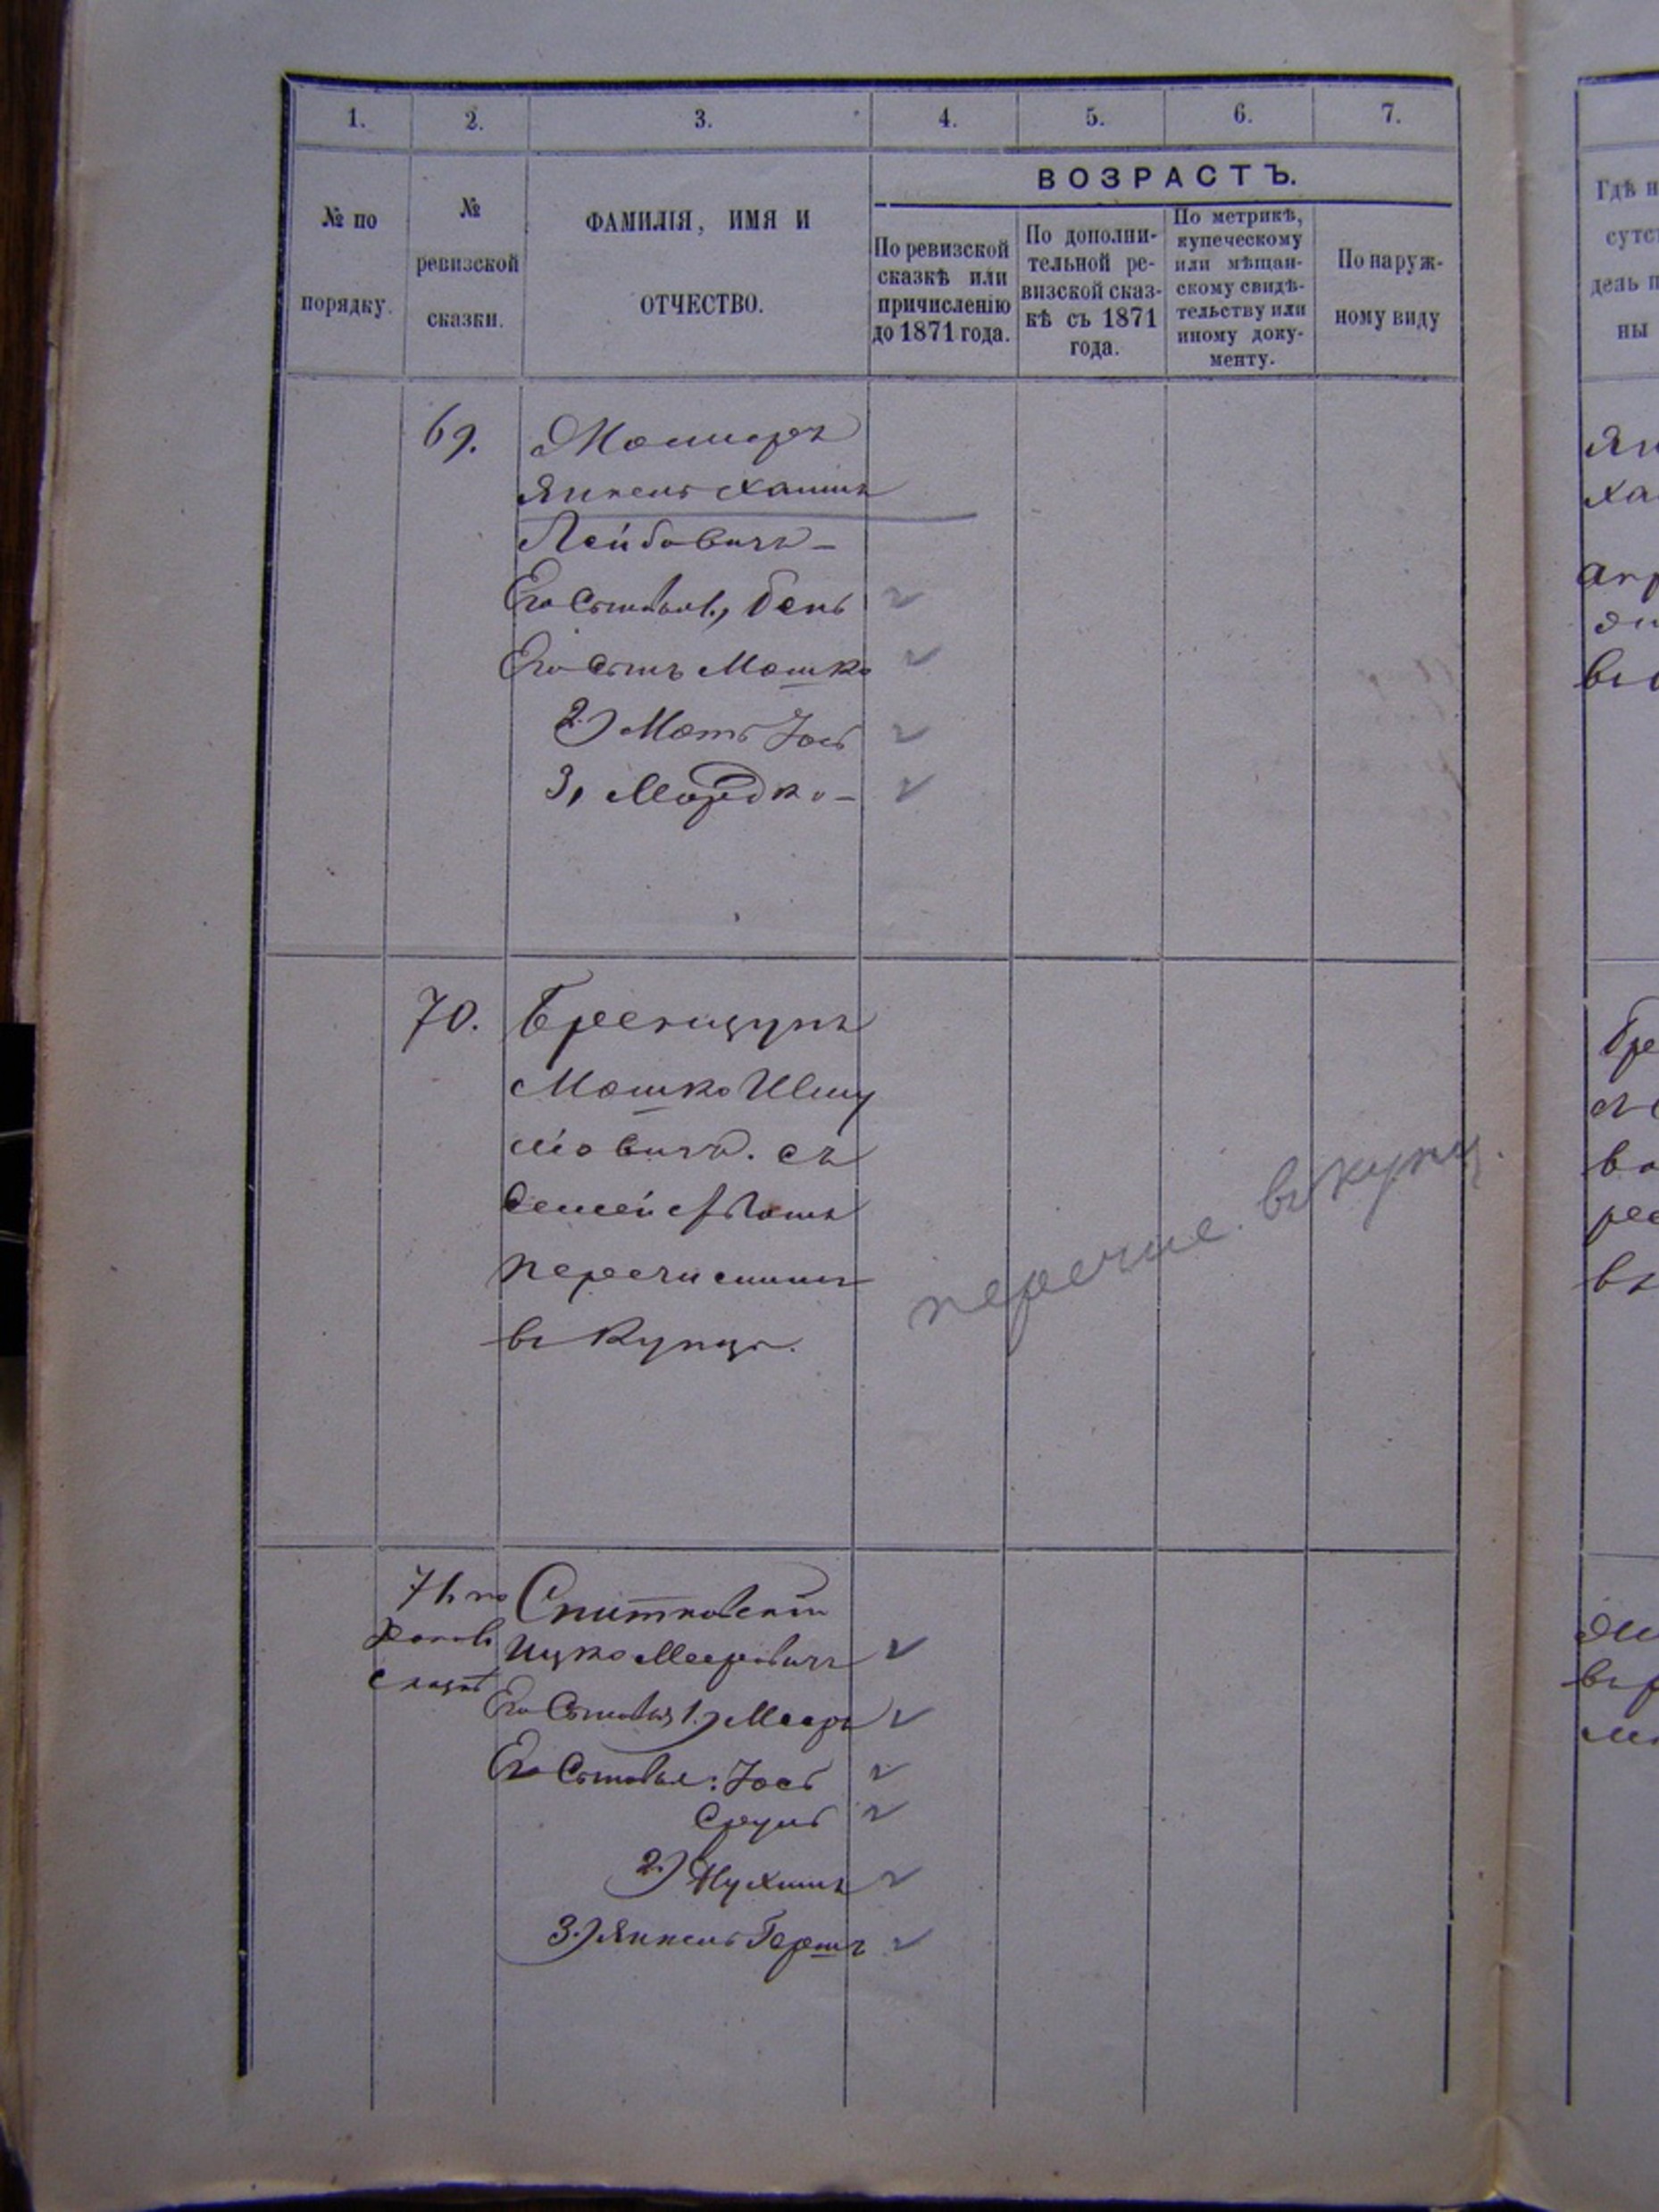 1. 2. 3. 4. 5. 6. 7.
№ по порядку.
№ ревизской сказки.
ФАМИЛІЯ, ИМЯ И
ОТЧЕСТВО.
ВОЗРАСТЪ.
По ревизской
сказкѣ или
причисленію
до 1871 года.
По дополни-
тельной ре-
визской сказ-
кѣ съ 1871
года.
По метрикѣ,
купеческому
или мѣщан-
скому свидѣ-
тельству или
иному доку-
менту.
По наруж-
ному виду
69.
Янкель Хаимъ
Лейбовичъ –
Его Сыновья, Бень
Его Сынъ Мошко
2) Мот Іось
3, Мордко –
70.
Мошко Шму
левичъ. съ
Семействомъ
перечисленъ
въ Купцы.
перечис. въ купц.
71, по
Спитковскій
Ицко Мееровичъ
Его Сыновья 1.) Мееръ
Его Сыновья: Іось
Сруль
2.) Нухимъ
3.) Янкель Гершъ
Гдѣ н
сутс
дѣль п
ны